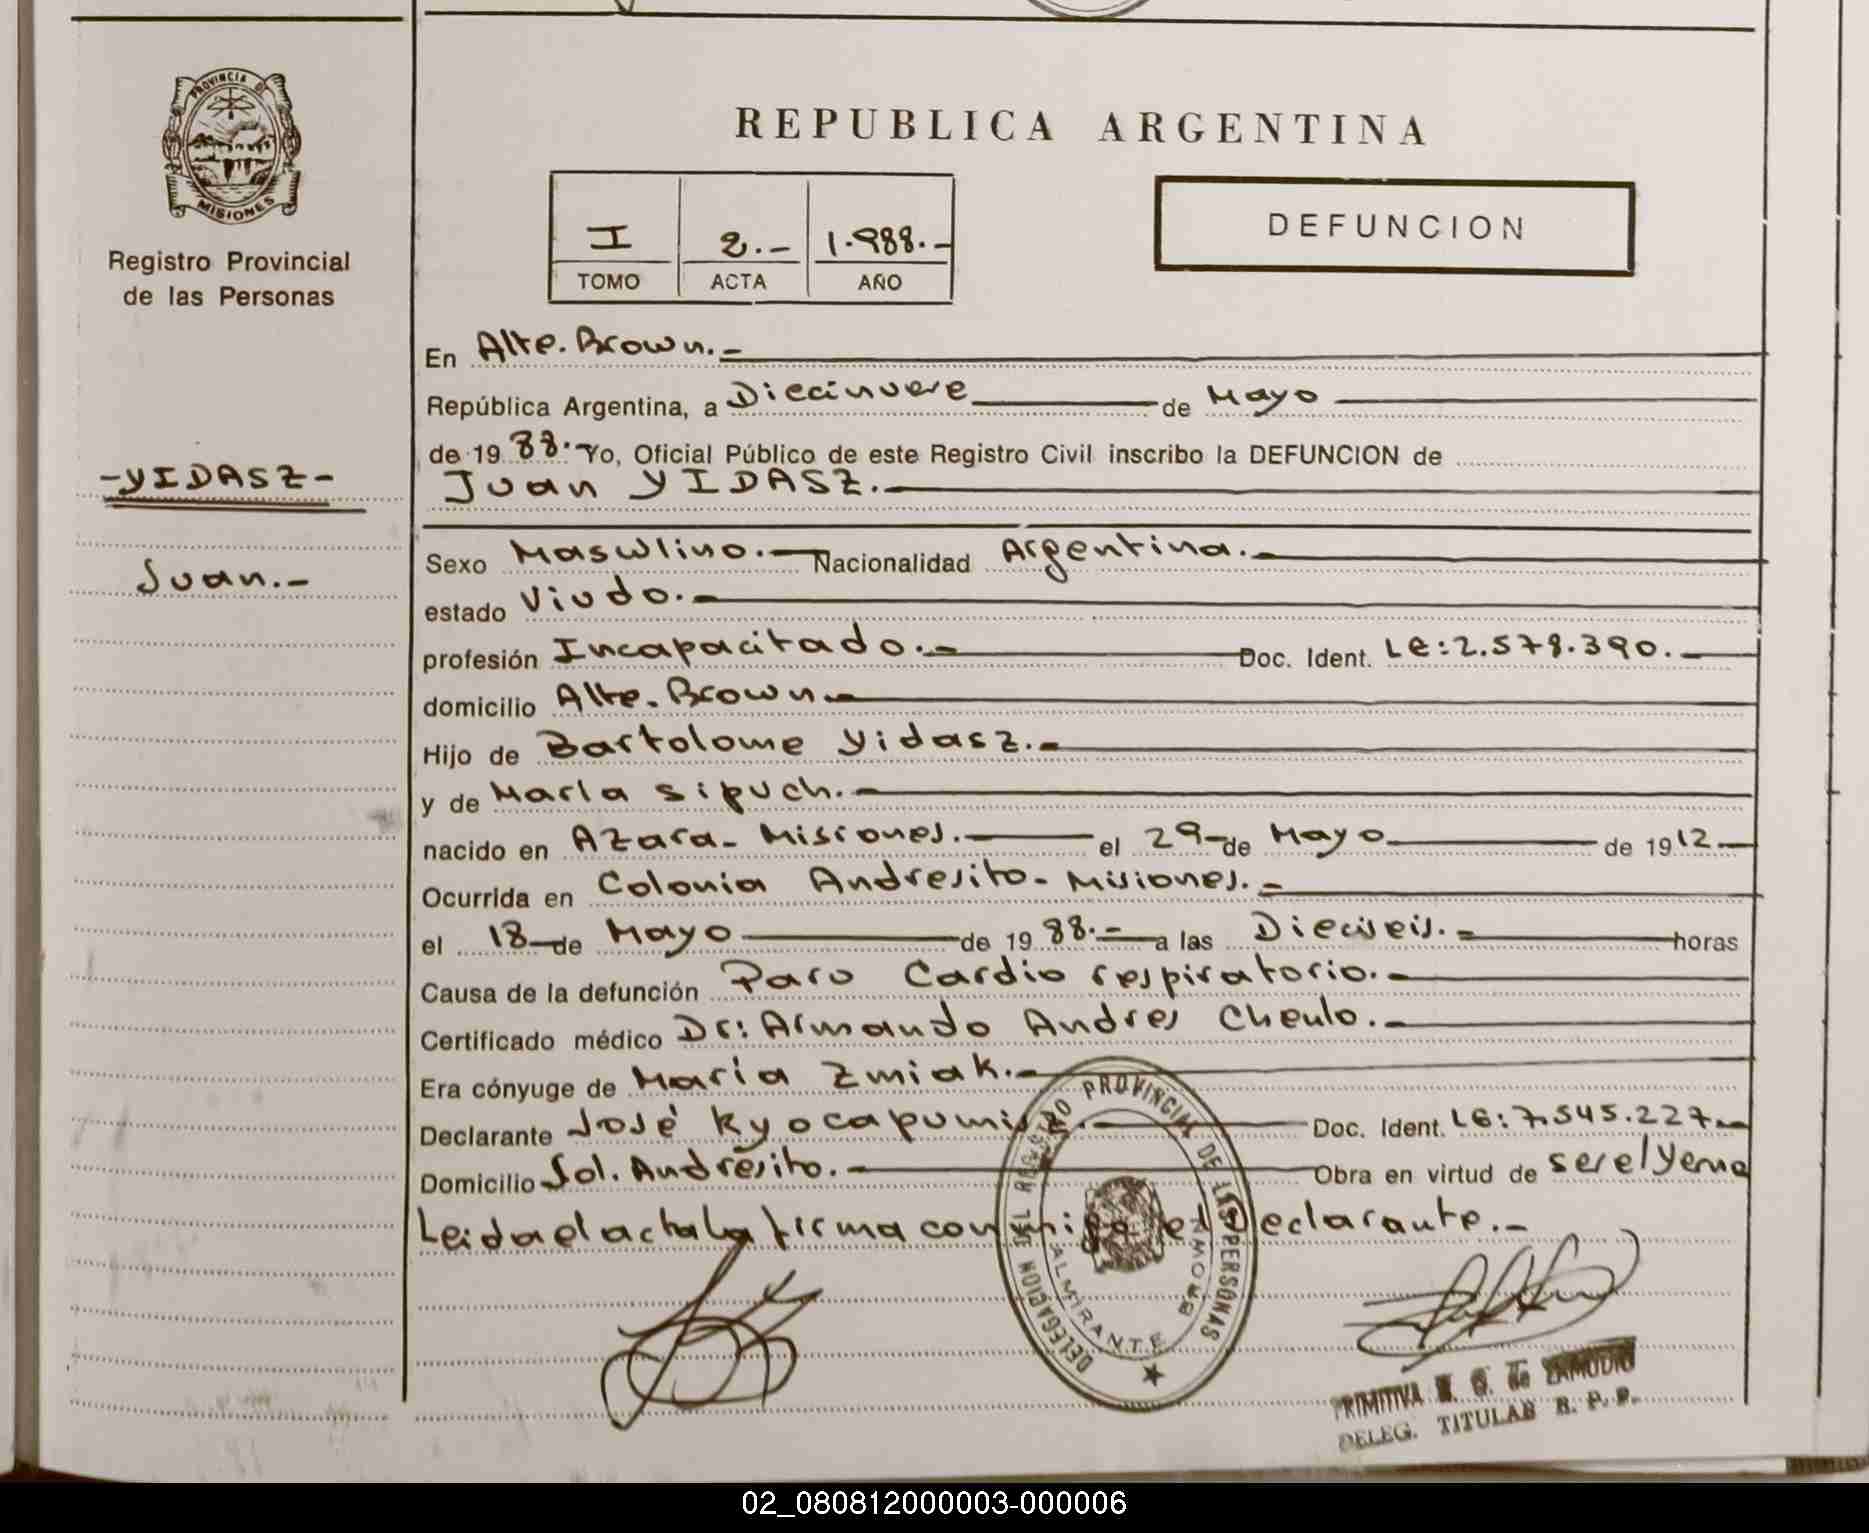 PROVINCIA DE
MISIONES
Registro Provincial
de las Personas
-YIDASZ-
Juan.-
REPUBLICA ARGENTINA
I 2.- 1.988.-
TOMO ACTA AÑO
DEFUNCION
En Alte. Brown.-
República Argentina, a Diecinueve de Mayo
de 19 88. Yo, Oficial Público de este Registro Civil inscribo la DEFUNCION de
Juan YIDASZ.-
Sexo Masculino.- Nacionalidad Argentina.-
estado Viudo.-
profesión Incapacitado.- Doc. Ident. LE:2.578.390.-
domicilio Alte. Brown.-
Hijo de Bartolome Yidasz.-
y de María Sipuch.-
nacido en Azara- Misiones.- el 29-de Mayo de 1912-
Ocurrida en Colonia Andresito- Misiones.-
el 18-de Mayo de 19 88.- a las Dieciseis.- horas
Causa de la defunción Paro Cardio respiratorio.-
Certificado médico Dr: Armando Andres
Era cónyuge de María Zmiak.-
Declarante José Doc. Ident. LE: 7.545.227-
Domicilio Andresito.- Obra en virtud de ser el Yerno
Leida el acta la firma conmigo el Declarante.-
DELEGACION DEL REGISTRO PROVINCIAL DE LAS PERSONAS
ALMIRANTE BROWN
PRIMITIVA de ZAMUDIO
DELEG. TITULAR R. P. P.
02_080812000003-000006